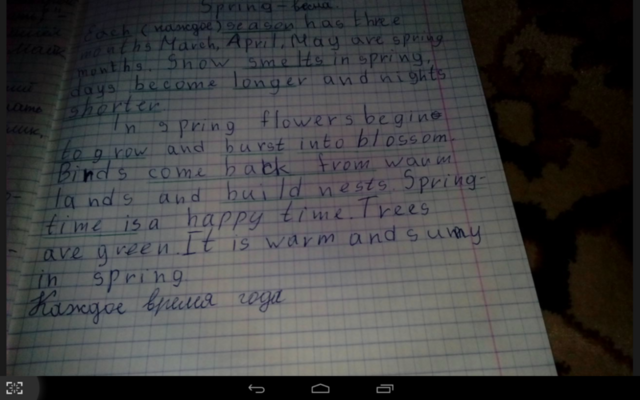 Spring - весна
Each (каждое) season has three
months March, April, May are spring
months. Snow smelts in spring,
days become longer and nights
shorter
In spring flowers begin
to grow and burst into blossom
Binds come back from warm
lands and build nests. Spring-
time is a happy time. Trees
are green. It is warm and sunny
in spring
Каждое время года